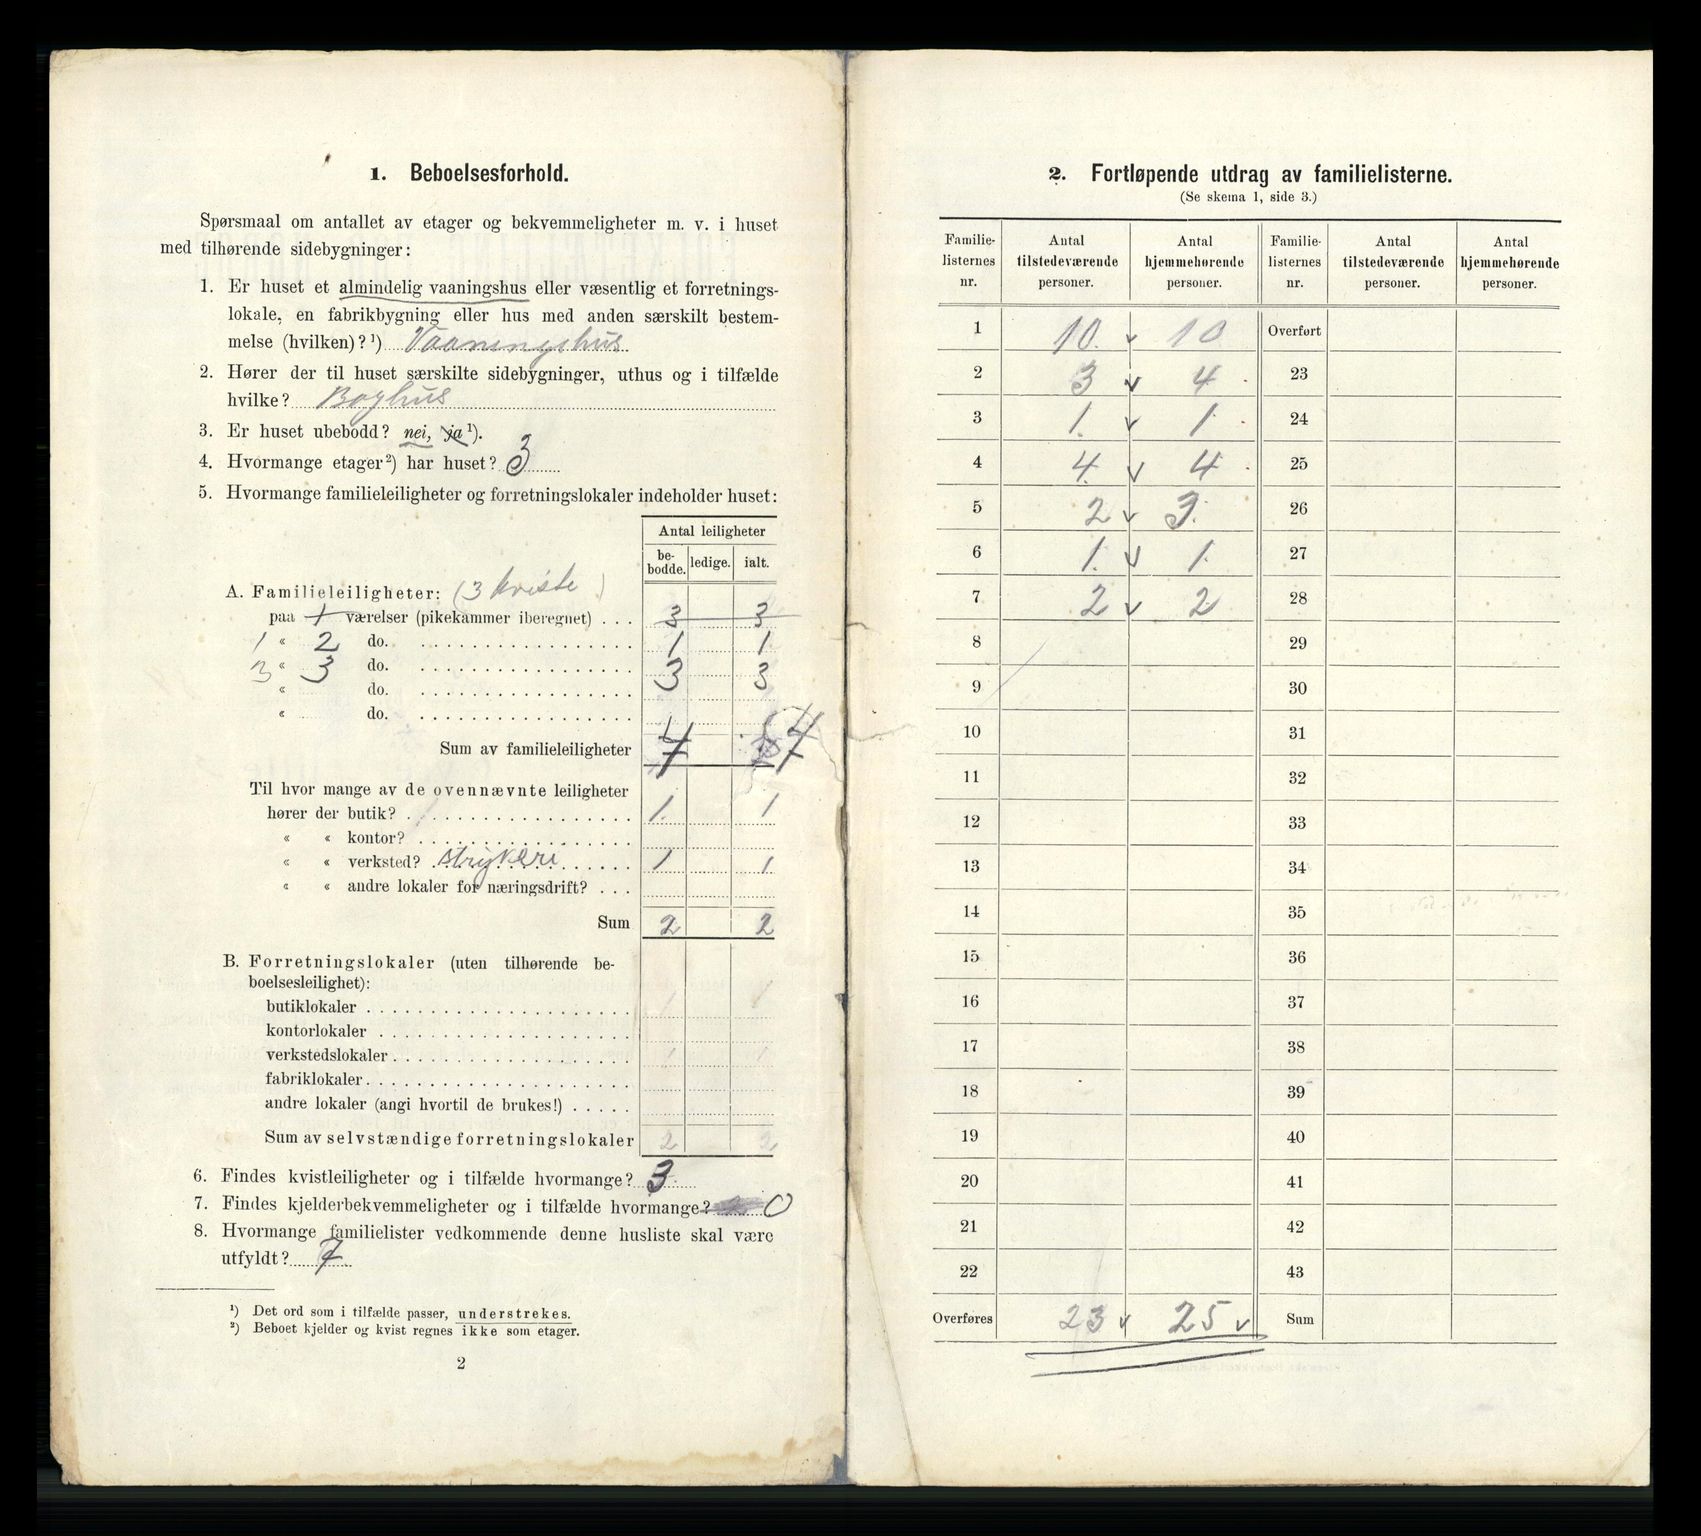 1. Beboelsesforhold.
Spørsmaal om antallet av etager og bekvemmeligheter m. v. i huset
med tilhørende sidebygninger:
1. Er huset et almindelig vaaningshus eller væsentlig et forretnings-
lokale, en fabrikbygning eller hus med anden særskilt bestem-
melse (hvilken)?¹) Vaaningshus
2. Hører der til huset særskilte sidebygninger, uthus og i tilfælde
hvilke? Baghus
3. Er huset ubebodd? nei, ja¹).
4. Hvormange etager²) har huset? 3
5. Hvormange familieleiligheter og forretningslokaler indeholder huset:
Antal leiligheter
be-bodde. ledige. ialt.
A. Familieleiligheter: (3 kviste)
paa 1 værelser (pikekammer iberegnet) . . . 3 3
1 « 2 do. 1 1
3 « 3 do. 3 3
« do.
« do.
Sum av familieleiligheter 4 7 4 7
Til hvor mange av de ovennævnte leiligheter
hører der butik? 1. 1
« « kontor?
« « verksted? strykeri 1 1
« « andre lokaler for næringsdrift? . . .
Sum 2 2
B. Forretningslokaler (uten tilhørende be-
boelsesleilighet):
butiklokaler 1 1
kontorlokaler
verkstedslokaler 1 1
fabriklokaler
andre lokaler (angi hvortil de brukes!)
Sum av selvstændige forretningslokaler 2 2
6. Findes kvistleiligheter og i tilfælde hvormange? 3
7. Findes kjelderbekvemmeligheter og i tilfælde hvormange? 0
8. Hvormange familielister vedkommende denne husliste skal være
utfyldt? 7
¹) Det ord som i tilfælde passer, understrekes.
²) Beboet kjelder og kvist regnes ikke som etager.
2
2. Fortløpende utdrag av familielisterne.
(Se skema 1, side 3.)
Familie-listernes nr. Antal tilstedeværende personer. Antal hjemmehørende personer. Familie-listernes nr. Antal tilstedeværende personer. Antal hjemmehørende personer.
1 10. v 10 Overført
2 3 v 4 23
3 1. v 1 24
4 4. v 4 25
5 2 v 3. 26
6 1. v 1. 27
7 2 v 2 28
8 29
9 30
10 31
11 32
12 33
13 34
14 35
15 36
16 37
17 38
18 39
19 40
20 41
21 42
22 43
Overføres 23 v 25 v Sum